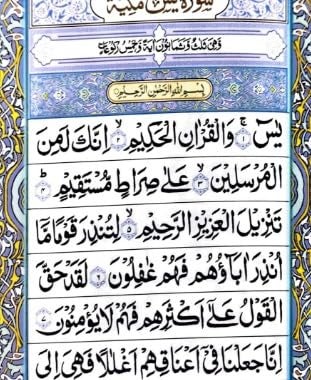 سُوْرَةُ يٰسٓ مَكِّيَّةٌ
وَهِىَ ثَلٰثٌ وَّثَمَانُوْنَ اٰيَةً وَّخَمْسُ رُكُوْعَاتٍ
بِسْمِ اللهِ الرَّحْمٰنِ الرَّحِيْمِ
يٰسٓ ۚ﴿۱﴾ وَالْقُرْاٰنِ الْحَكِيْمِ ۙ﴿۲﴾ اِنَّكَ لَمِنَ
الْمُرْسَلِيْنَ ۙ﴿۳﴾ عَلٰى صِرَاطٍ مُّسْتَقِيْمٍ ؕ﴿۴﴾
تَنْزِيْلَ الْعَزِيْزِ الرَّحِيْمِ ۙ﴿۵﴾ لِتُنْذِرَ قَوْمًا مَّآ
اُنْذِرَ اٰبَآؤُهُمْ فَهُمْ غٰفِلُوْنَ ﴿۶﴾ لَقَدْ حَقَّ
الْقَوْلُ عَلٰٓى اَكْثَرِهِمْ فَهُمْ لَا يُؤْمِنُوْنَ ﴿۷﴾
اِنَّا جَعَلْنَا فِىْٓ اَعْنَاقِهِمْ اَغْلٰلًا فَهِىَ اِلَى